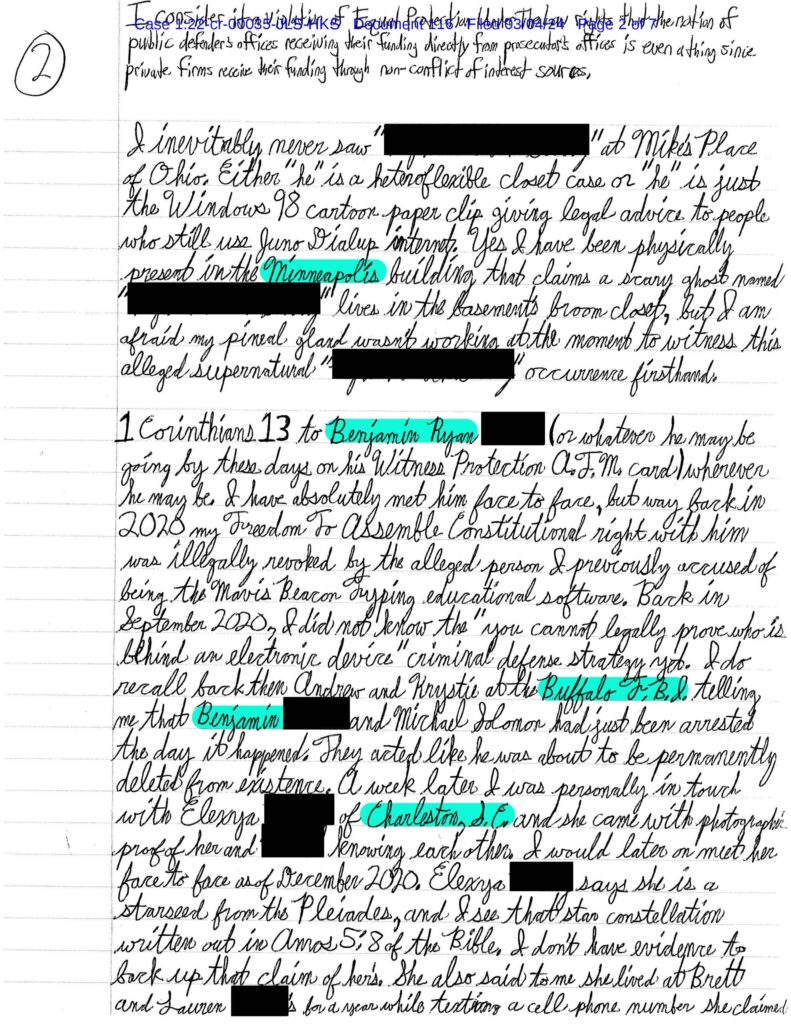 Case 1:22-cr-00035-JLS-HKS Document 116 Filed 03/04/24 Page 2 of 7
I consider it a violation of Equal Protection Under The Law rights that the notion of
2
public defender's offices receiving their funding directly from prosecutor's offices is even a thing since
private firms receive their funding through non-conflict of interest sources.
I inevitably never saw " " at Mike's Place
of Ohio. Either "he" is a heteroflexible closet case or "he" is just
the Windows 98 cartoon paper clip giving legal advice to people
who still use Juno Dialup internet. Yes I have been physically
present in the Minneapolis building that claims a scary ghost named
" " lives in the basement's broom closet, but I am
afraid my pineal gland wasn't working at the moment to witness this
alleged supernatural " " occurrence firsthand.
1 Corinthians 13 to Benjamin Ryan (or whatever he may be
going by these days on his Witness Protection A.T.M. card) wherever
he may be. I have absolutely met him face to face, but way back in
2020 my Freedom To Assemble Constitutional right with him
was illegally revoked by the alleged person I previously accused of
being the Mavis Beacon Typing educational software. Back in
September 2020, I did not know the "you cannot legally prove who is
behind an electronic device" criminal defense strategy yet. I do
recall back then Andrew and Krystie at the Buffalo F.B.I. telling
me that Benjamin and Michael Solomon had just been arrested
the day it happened. They acted like he was about to be permanently
deleted from existence. A week later I was personally in touch
with Elexya of Charleston, S.C. and she came with photographic
proof of her and knowing each other. I would later on meet her
face to face as of December 2020. Elexya says she is a
starseed from the Pleiades, and I see that star constellation
written out in Amos 5:8 of the Bible. I don't have evidence to
back up that claim of her's. She also said to me she lived at Brett
and Lauren 's for a year while texting a cell phone number she claimed